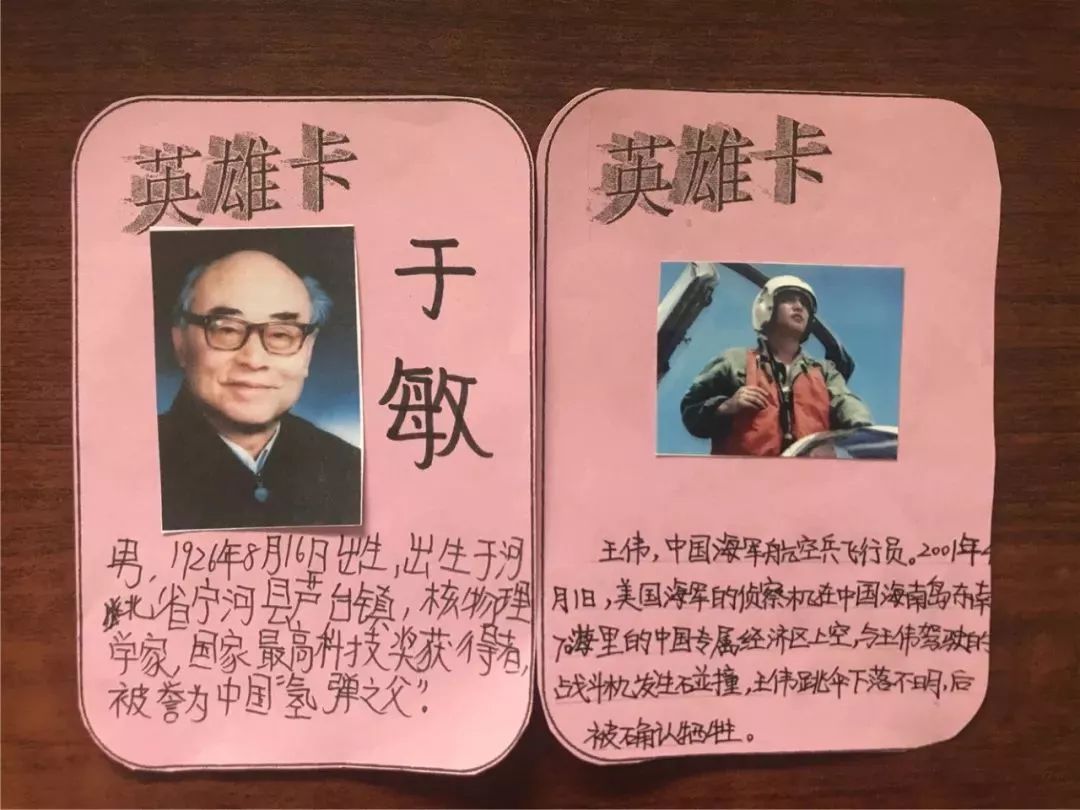 英雄卡
于
敏
男，1926年8月16日出生，出生于河
北省宁河县芦台镇，核物理
学家，国家最高科技奖获得者，
被誉为中国“氢弹之父”。
英雄卡
王伟，中国海军航空兵飞行员。2001年4
月1日，美国海军的侦察机在中国海南岛东南
70海里的中国专属经济区上空，与王伟驾驶的
战斗机发生碰撞，王伟跳伞下落不明，后
被确认牺牲。